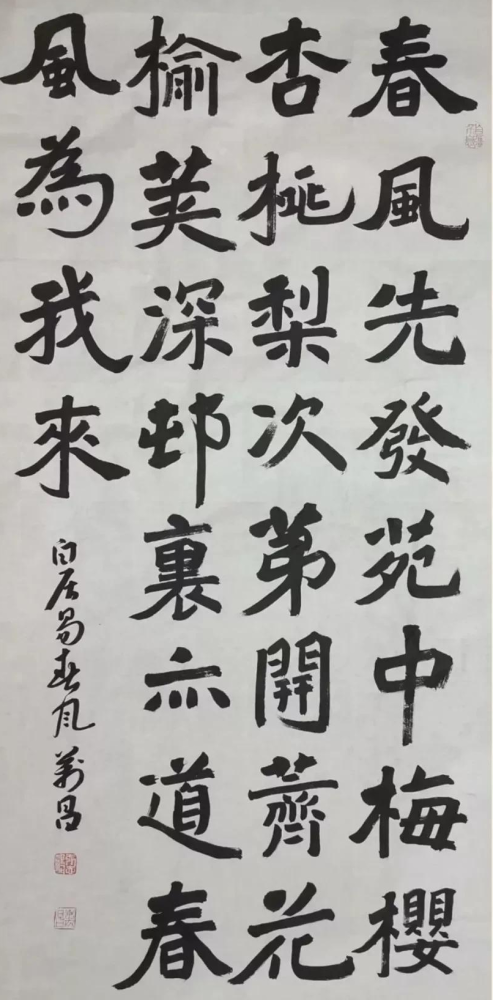 春風先發苑中梅櫻
杏桃梨次苐開薺花
榆莢深邨裏亦道春
風為我來
白居易春風 萬昌